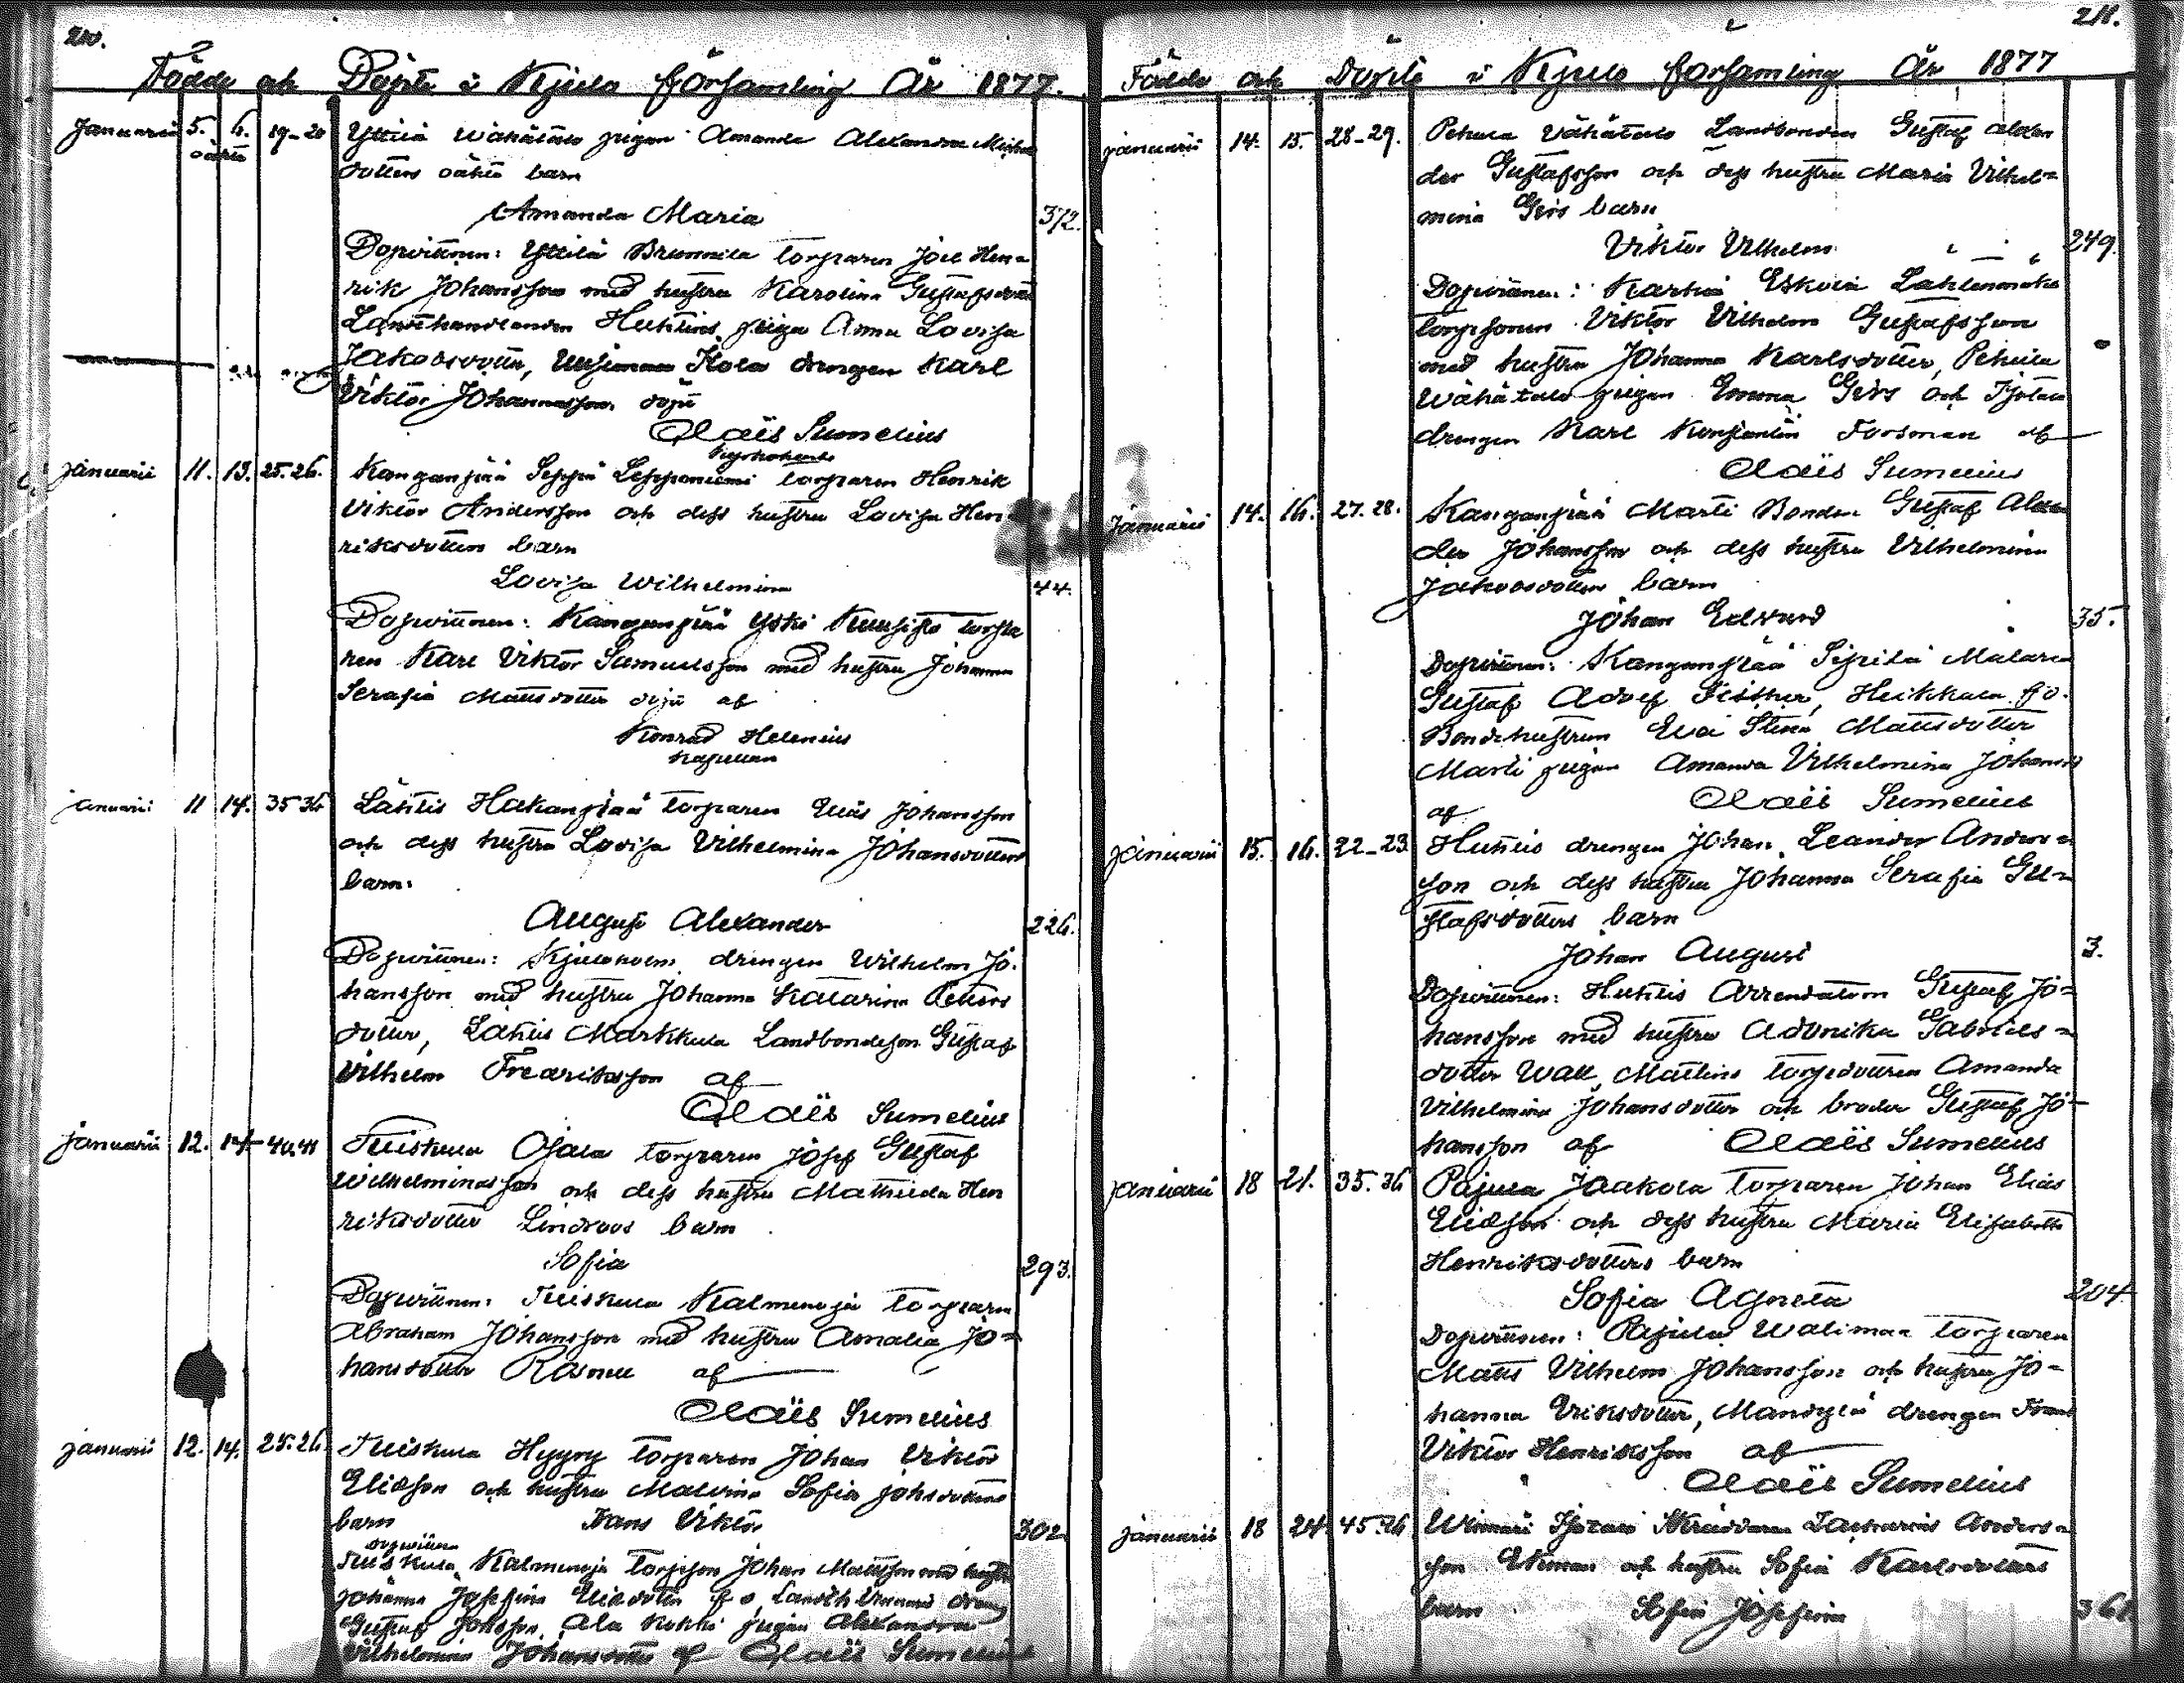 210.
Födde och Döpte i Kjulo församling År 1877.
Januarii 5. 6. 19-20 Yttilä Wähätalo pigan Amanda Alexandra Michels
oäkta
dotters oäkta barn
Amanda Maria 372.
Dopvittnen: Yttilä Brunnila torparen Joel Hen-
rik Johansson med hustru Karolina Gustafsdotter
Landthandlanden Huhtinis piga Anna Lovisa
Jakobsdotter, Kola drengen Karl
Viktor Johannesson döpt
Claës Sumelius
Kyrkoherde
januarii 11. 13. 25.26. Kanganpää Seppä Leppäniemi torparen Henrik
Viktor Andersson och dess hustru Lovisa Hen-
riksdotters barn
Lovisa Wilhelmina 44.
Dopvittnen: Kanganpää Yski Kuusisto torpa
ren Karl Viktor Samuelsson med hustru Johanna
Serafia Mattsdotter döpt af
Konrad Helenius
kapellan
januarii 11 14. 35 36 Lähtis Hakanpää torparen Elias Johansson
och dess hustru Lovisa Vilhelmina Johansdotters
barn.
August Alexander 226.
Dopvittnen: Kjuloholm drengen Wilhelm Jo-
hansson med hustru Johanna Katarina Petters
dotter, Lähtis Markkula Landbondeson Gustaf
Vilhelm Fredriksson af
Claës Sumelius
januarii 12. 14 40.41 Tuiskula Ojala torparen Josef Gustaf
Wilhelminasson och dess hustru Mathilda Hen
riksdotter Lindroos barn
Sofia 293.
Dopvittnen: Tuiskula Kalmenoja torparen
Abraham Johansson med hustru Amalia Jo-
hansdotter Rasmu af
Claës Sumelius
januarii 12. 14. 25.26. Tuiskula Hyyry torparen Johan Viktor
Eliasson och hustru Malvina Sofia Johsdotters
barn Frans Viktor 302
dopvittnen
Tuiskula Kalmenoja torpson Johan Mattsson med hustru
Johanna Josefina Eliedotter f o Landth
Gustaf Johsson, Ala Kokki pigan Alexandra
Vilhelmina Johansdotter af Claës Sumelius
211.
Födde och Döpte i Kjulo församling År 1877
januarii 14. 15. 28-29. Pehula Vähätalo Landbonden Gustaf Alexan
der Gustafsson och dess hustru Maria Vilhel-
mina Gers barn
Viktor Vilhelm 249.
Dopvittnen: Karhia Eskola
torpsonen Viktor Vilhelm Gustafsson
med hustru Johanna Karlsdotter, Pehula
Wähätalo pigan Emma Gers och
drengen Karl Konstantin Forsman af
Claës Sumelius
Januarii 14. 16. 27.28. Kanganpää Martti Bonden Gustaf Alexan
der Johansson och dess hustru Vilhelmina
Jakobsdotters barn
Johan Edvard 35.
Dopvittnen: Kanganpää Sipilä Målaren
Gustaf Adolf, Heikkula f o.
Bondehustrun Eva Stina Mattsdotter
Martti pigan Amanda Vilhelmina Johansd
af Claës Sumelius
januarii 15. 16. 22-23 Huhtis drengen Johan Leander Anders-
son och dess hustru Johanna Serafia Gu-
stafsdotters barn
Johan August 3.
Dopvittnen: Huhtis Arrendatorn Gustaf Jo-
hansson med hustru Advnika Gabriels-
dotter Wall, Mattins torpdottren Amanda
Vilhelmina Johansdotter och broder Gustaf Jo-
hansson af Claës Sumelius
januarii 18 21. 35.36 Pajula Jaakola torparen Johan Elias
Eliasson och dess hustru Maria Elisabeth
Henriksdotters barn
Sofia Agneta 204
Dopvittnen: Pajula Walimaa torparen
Matts Vilhelm Johansson och hustru Jo-
hanna Eriksdotter, drengen Frans
Viktor Henriksson af
Claës Sumelius
januarii 18 24. 45.46 Skräddaren Zacharias Anders-
son Ekman och hustru Sofia Karlsdotters
barn Sofia Josefina 361.